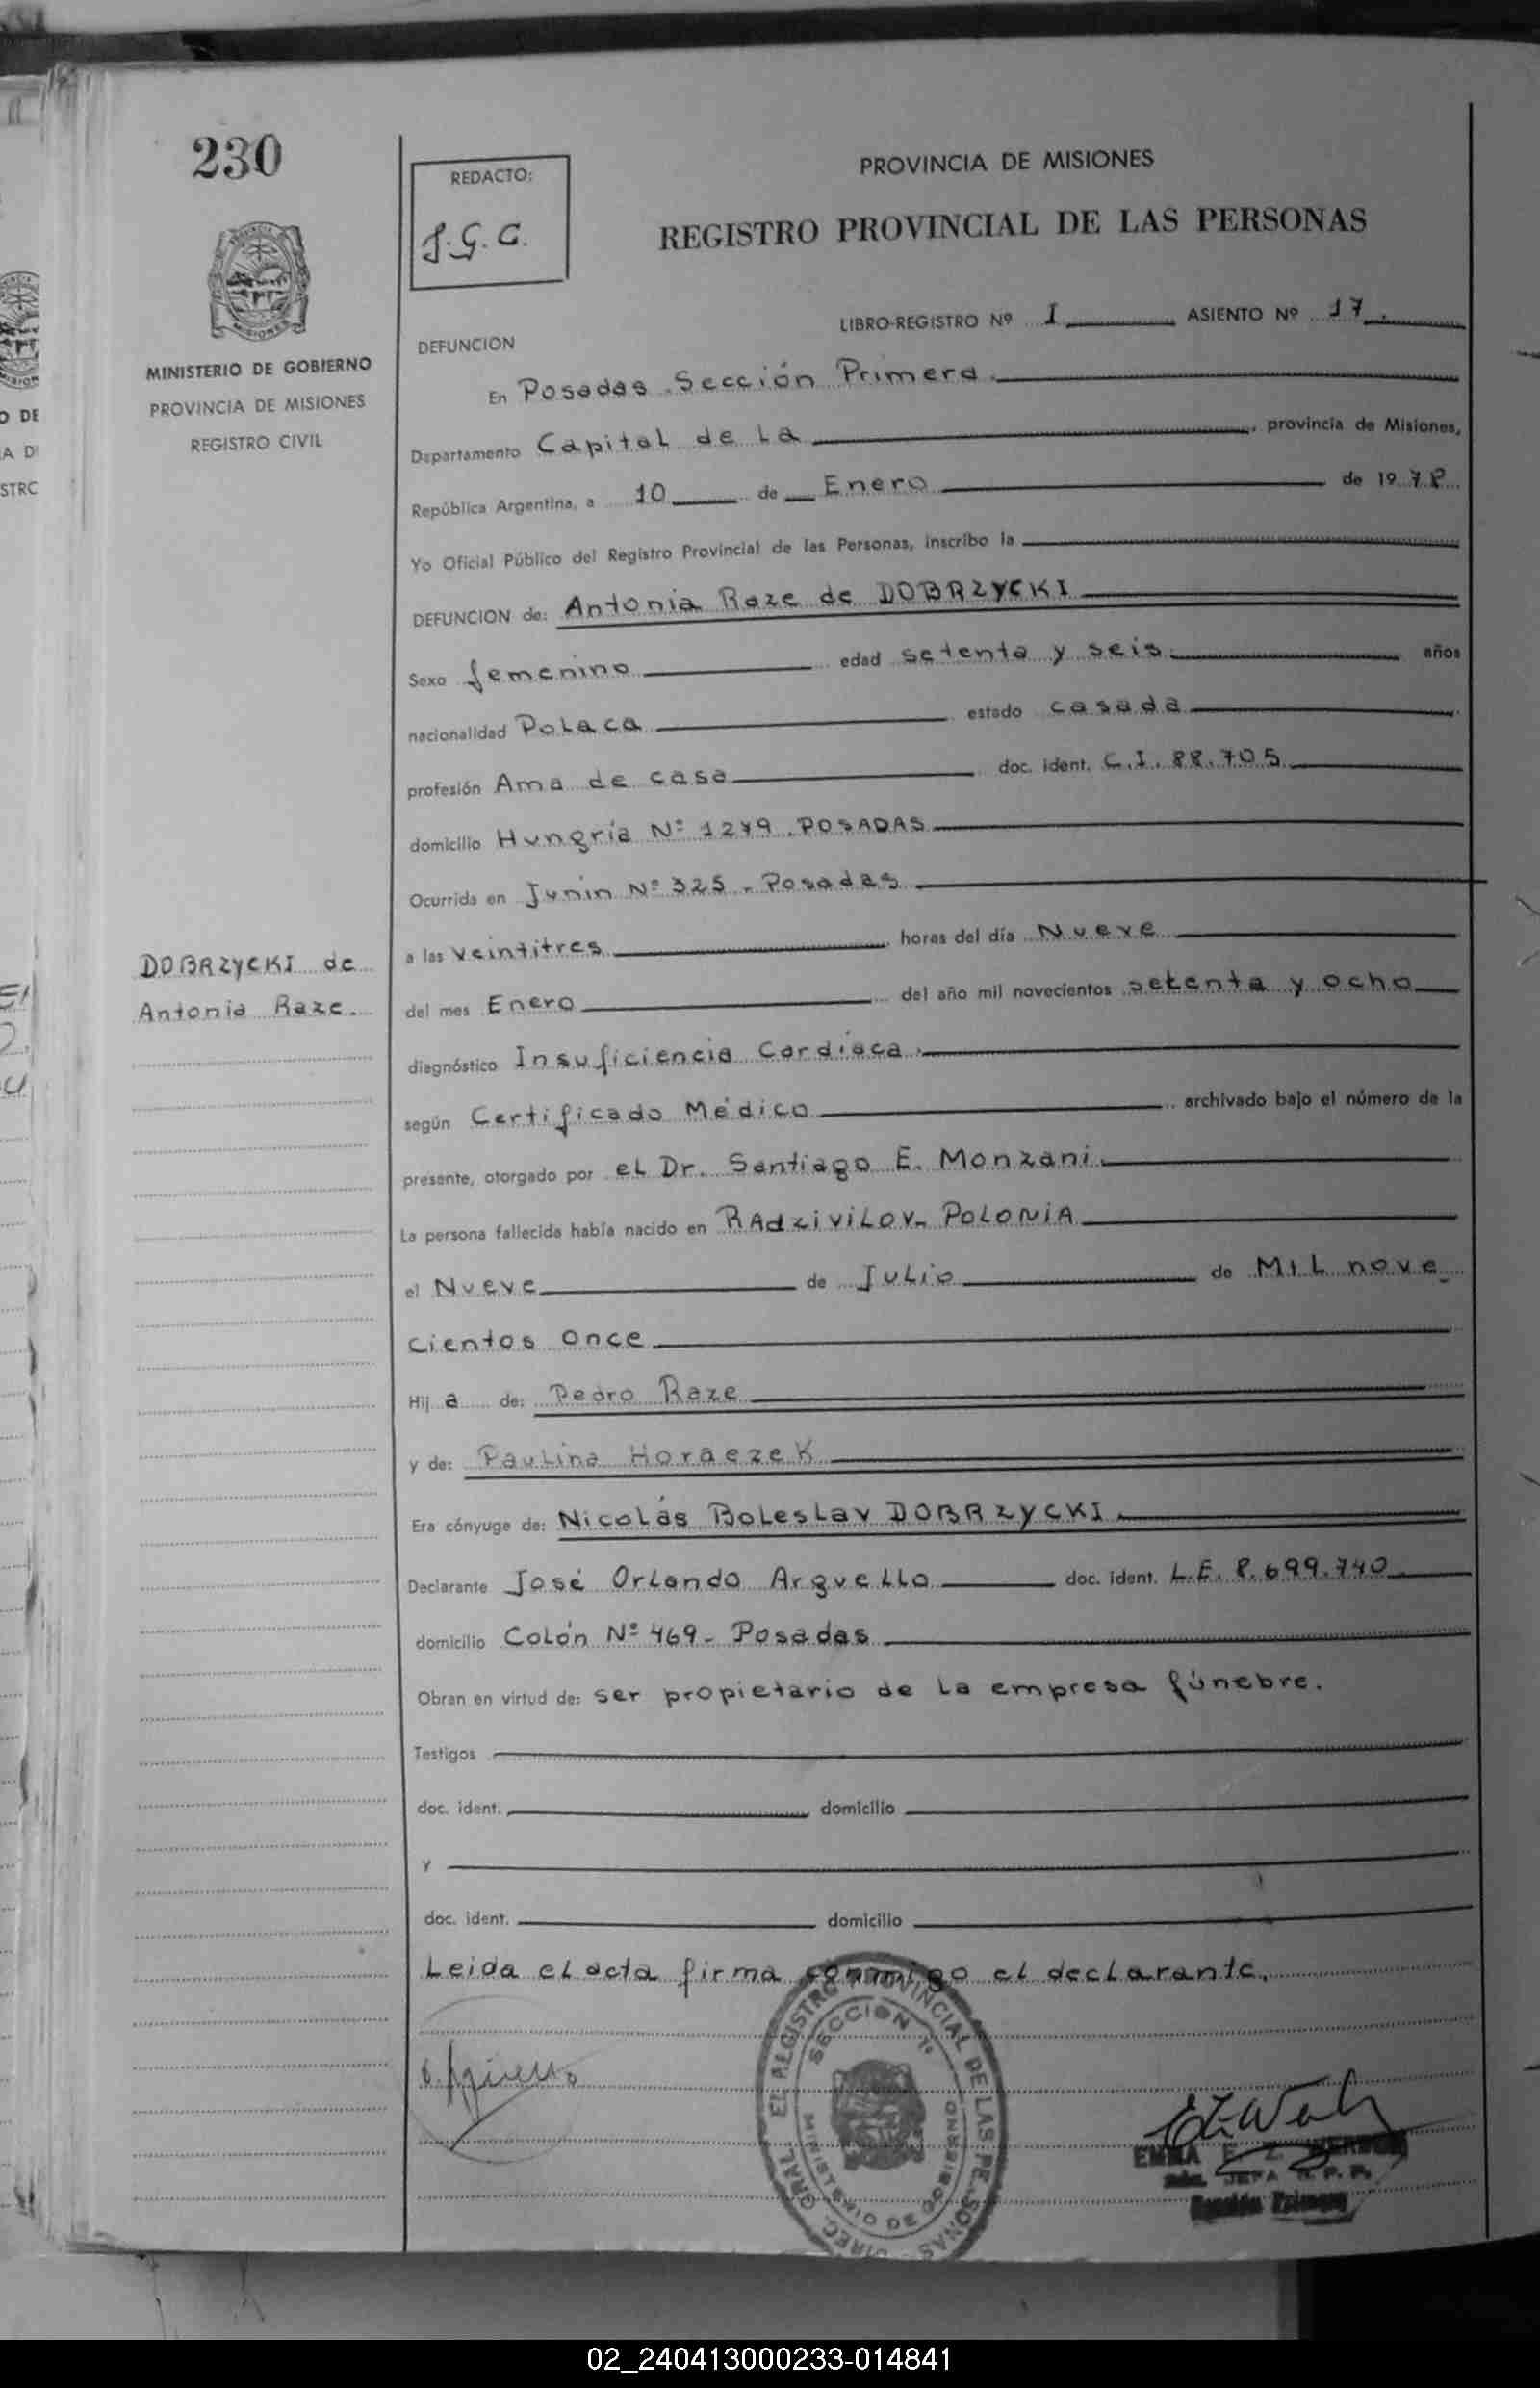 230
REDACTO:
J.G.C.
PROVINCIA DE MISIONES
REGISTRO PROVINCIAL DE LAS PERSONAS
MINISTERIO DE GOBIERNO
PROVINCIA DE MISIONES
REGISTRO CIVIL
LIBRO-REGISTRO Nº I ASIENTO Nº 17.
DEFUNCION
En Posadas. Sección Primera.
Departamento Capital de La, provincia de Misiones,
República Argentina, a 10 de Enero de 1978
Yo Oficial Público del Registro Provincial de las Personas, inscribo la
DEFUNCION de: Antonia Raze de DOBRZYCKI
Sexo femenino edad setenta y seis años
nacionalidad Polaca estado casada
profesión Ama de casa doc. ident. C.I. 88.705
domicilio Hungría Nº 1249. POSADAS
Ocurrida en Junin Nº 325 - Posadas
a las veintitres horas del día Nueve
DOBRZYCKI de
Antonia Raze.
del mes Enero del año mil novecientos setenta y ocho
diagnóstico Insuficiencia Cardíaca.
según Certificado Médico archivado bajo el número de la
presente, otorgado por el Dr. Santiago E. Monzani.
La persona fallecida había nacido en RAdziviLOV- POLONIA
el Nueve de Julio de MIL nove_
cientos once
Hij a de: Pedro Raze
y de: Paulina Horaezek
Era cónyuge de: Nicolás Boleslav DOBRZYCKI.
Declarante José Orlando Arguello doc. ident. L.E. 8.699.740
domicilio Colón Nº 469- Posadas
Obran en virtud de: ser propietario de la empresa fúnebre.
Testigos
doc. ident. domicilio
y
doc. ident. domicilio
Leida el acta firma conmigo el declarante.
DIREC. GRAL. EL REGISTRO PROVINCIAL DE LAS PERSONAS
SECCION 1ª
MINISTERIO DE GOBIERNO
EMMA E. Z.
JEFA R. P. P.
Sección Primera
02_240413000233-014841